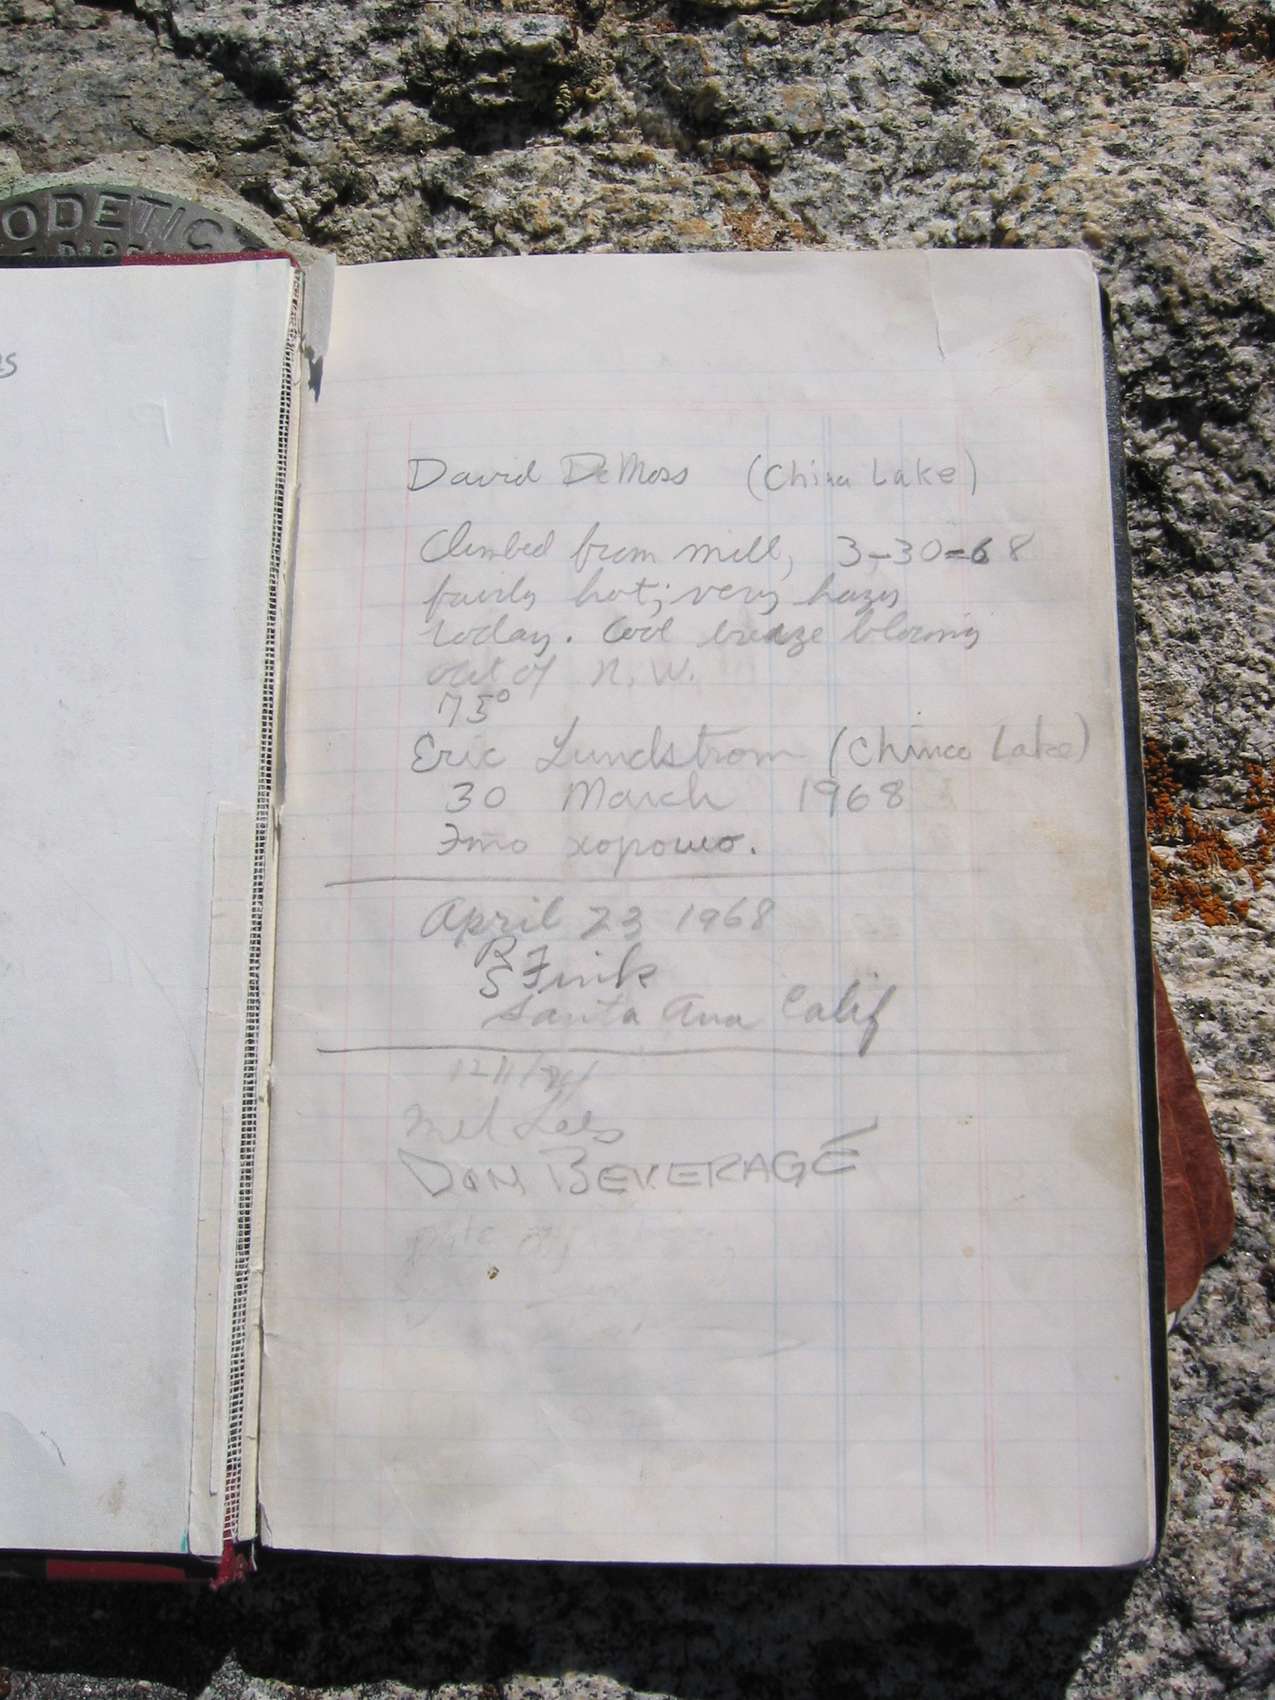 ODETIC
David DeMoss (China Lake)
Climbed from mill, 3-30-68
fairly hot; very hazy
today. Cool breeze blowing
out of N.W.
75°
Eric Lundstrom (China Lake)
30 March 1968
Это хорошо.
April 23 1968
R
S Fink
Santa Ana Calif
DON BEVERAGE